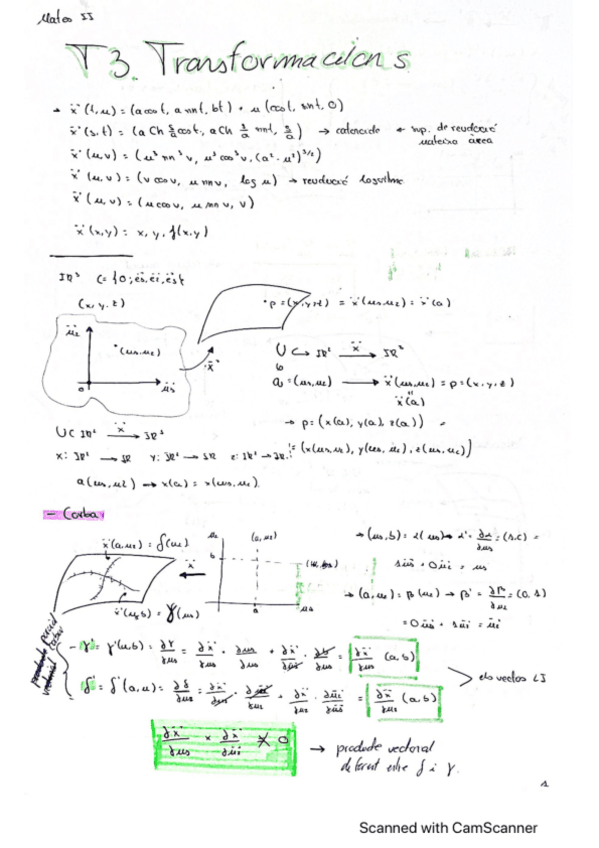 Mates II
T3. Transformacions
x(t,u) = (a cos t, a sin t, bt) + u(cos t, sin t, 0)
x(s,t) = (a Ch s/a cos t, a Ch s/a sin t, s/a) → catenoide ← sup. de revolució mateixa àrea
x(u,v) = (u³ sin³ v, u³ cos³ v, (a² - u²)^3/2)
x(u,v) = (u cos v, u sin v, log u) → revolució logaritme
x(u,v) = (u cos v, u sin v, v)
x(x,y) = x, y, f(x,y)
IR³ C = {0; e1, e2, e3}
(x, y, z)
p = (x,y,z) = x(u1,u2) = x(a)
u2
(u1,u2)
x
0
u1
U ⊂ IR² x→ IR³
a = (u1,u2) → x(u1,u2) = p = (x,y,z)
x(a)
→ p = (x(a), y(a), z(a))
= (x(u1,u2), y(u1,u2), z(u1,u2))
U ⊂ IR² x→ IR³
x: IR² → IR y: IR² → IR z: IR² → IR
a(u1,u2) → x(a) = x(u1,u2)
- Corba
x(a,u2) = δ(u2)
u2
(a,u2)
b
(u1,b)
x
a
u1
x(u1,b) = γ(u1)
→ (u1,b) = α(u1) → α' = ∂α/∂u1 = (1,0) =
1u1 + 0u2 = u1
→ (a,u2) = β(u2) → β' = ∂β/∂u2 = (0,1)
= 0u1 + 1u2 = u2
- γ' = γ'(u,b) = ∂γ/∂u1 = ∂x/∂u1 · ∂u1/∂u1 + ∂x/∂u2 · ∂b/∂u1 = ∂x/∂u1 (a,b)
δ' = δ'(a,u) = ∂δ/∂u2 = ∂x/∂u1 · ∂a/∂u2 + ∂x/∂u2 · ∂u2/∂u2 = ∂x/∂u2 (a,b)
els vectors LI
∂x/∂u1 × ∂x/∂u2 ≠ 0 → producte vectorial
diferent entre δ i γ.
1
Scanned with CamScanner